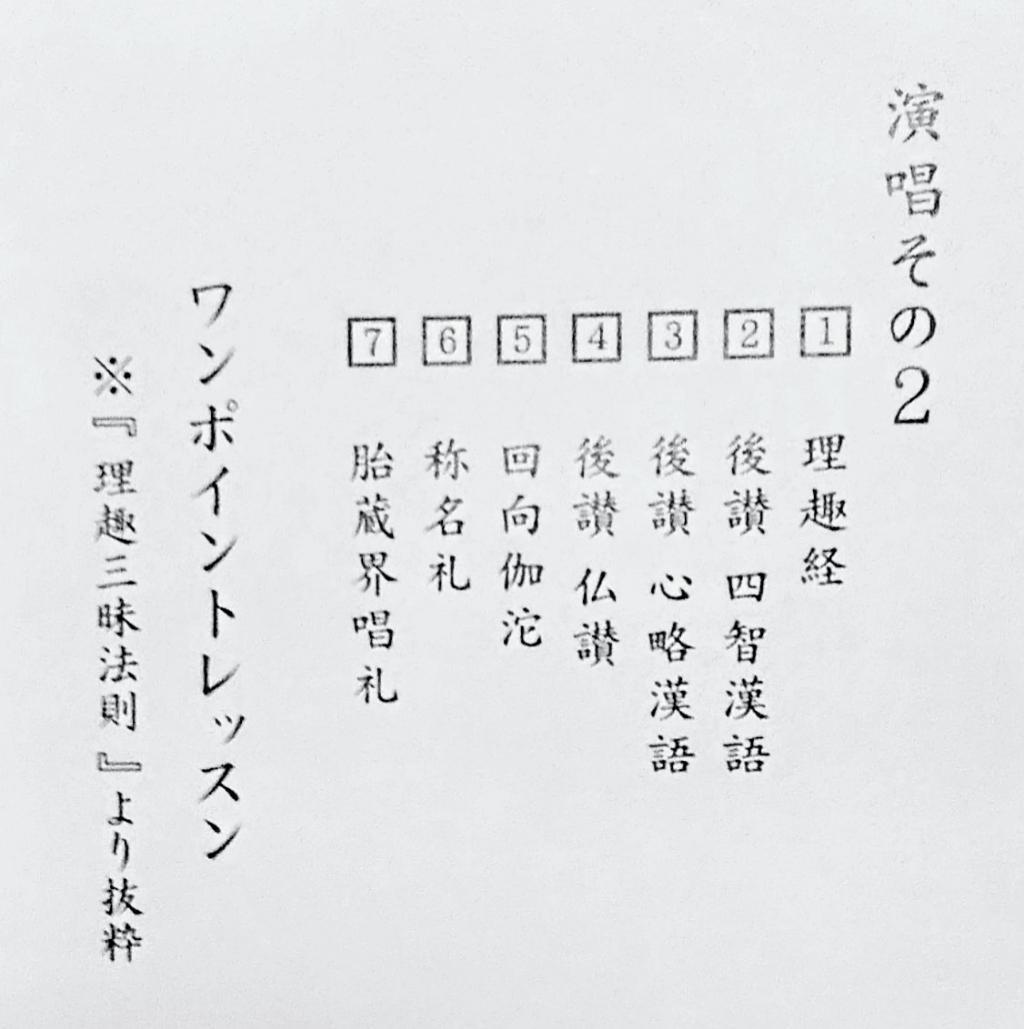 演唱その2
1 理趣経
2 後讃 四智漢語
3 後讃 心略漢語
4 後讃 仏讃
5 回向伽沱
6 称名礼
7 胎蔵界唱礼
ワンポイントレッスン
※『理趣三昧法則』より抜粋